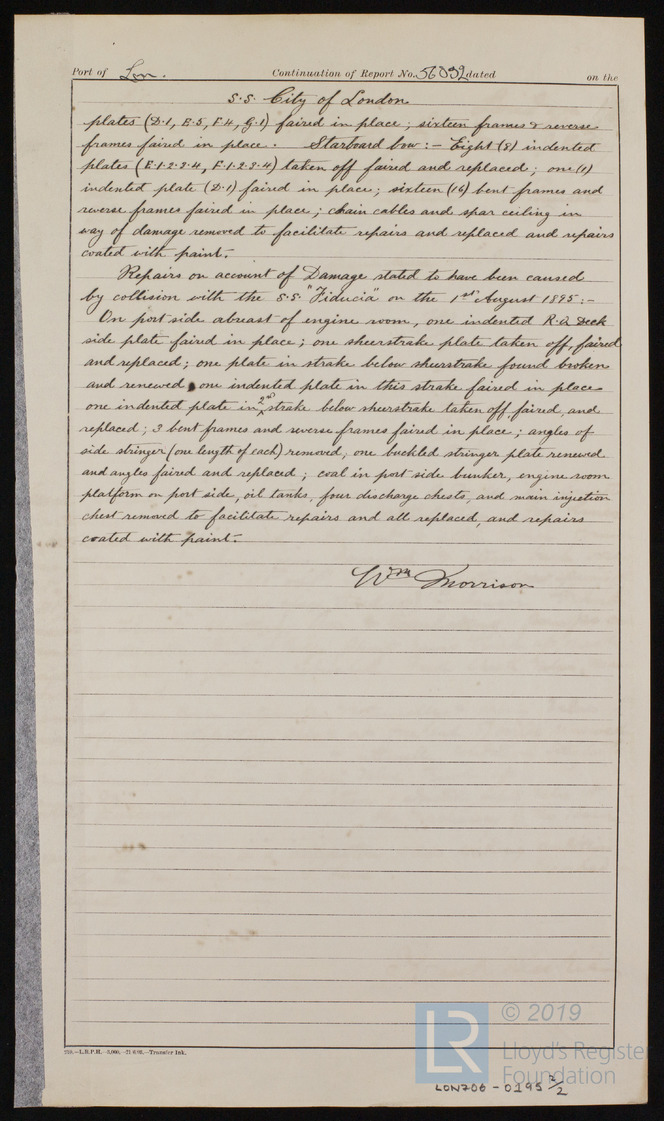 Port of Lon. Continuation of Report No. 56092 dated on the
S.S. City of London
plates (D.1, E.5, F.4, G.1) faired in place; sixteen frames & reverse
frames faired in place. Starboard bow:- Eight (8) indented
plates (E.1.2.3.4, F.1.2.3.4) taken off faired and replaced; one (1)
indented plate (D.1) faired in place; sixteen (16) bent frames and
reverse frames faired in place; chain cables and spar ceiling in
way of damage removed to facilitate repairs and replaced and repairs
coated with paint.
Repairs on account of Damage stated to have been caused
by collision with the S.S. "Fiducia" on the 1st August 1895:-
On port side abreast of engine room, one indented R.Q. Deck
side plate faired in place; one sheerstrake plate taken off, faired
and replaced; one plate in strake below sheerstrake found broken
and renewed one indented plate in this strake faired in place
one indented plate in 2nd strake below sheerstrake taken off, faired, and
replaced; 3 bent frames and reverse frames faired in place; angles of
side stringer (one length of each) removed, one buckled stringer plate renewed
and angles faired and replaced; coal in port side bunker, engine room
platform on port side, oil tanks, four discharge chests, and main injection
chest removed to facilitate repairs and all replaced, and repairs
coated with paint.
Wm Morrison
L.R.P.H.—3,000.—21.6.92.—Transfer Ink.
LR
© 2019
Lloyd's Register
Foundation
LON706-0195 2/2